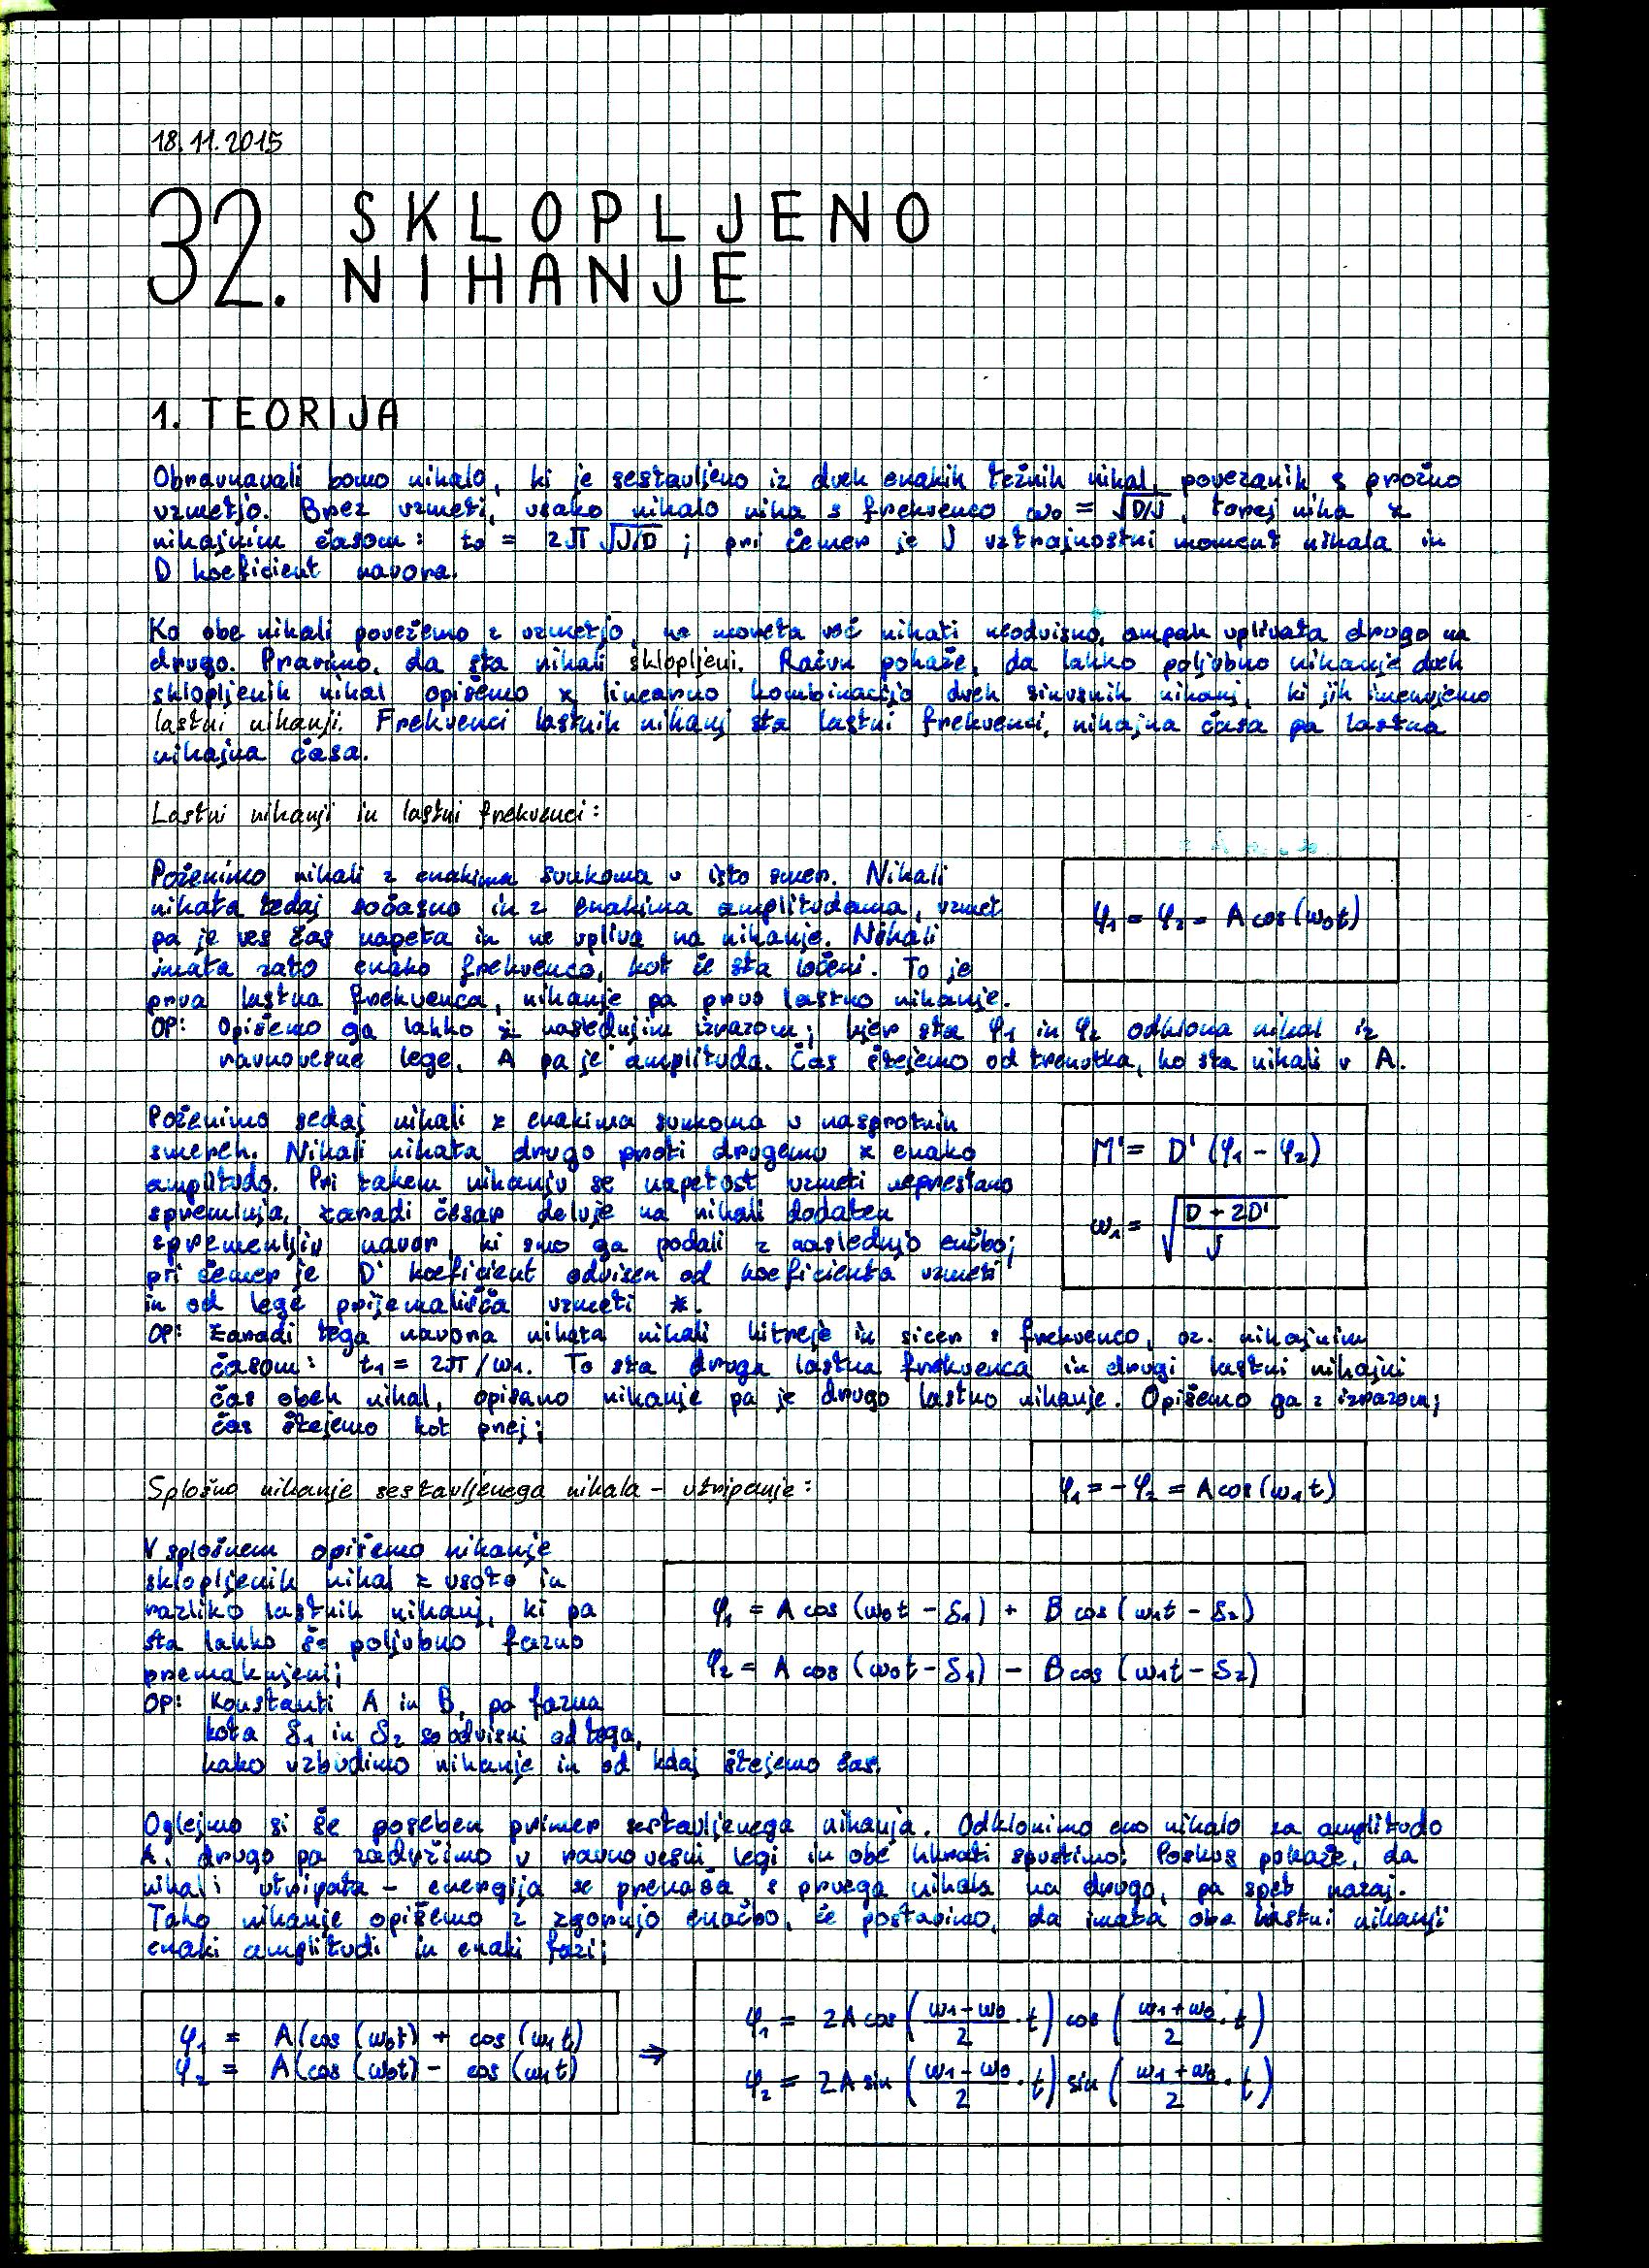 18.11.2015
32. SKLOPLJENO
NIHANJE
1. TEORIJA
Obravnavali bomo nihalo, ki je sestavljeno iz dveh enakih težnih nihal, povezanih s prožno
vzmetjo. Brez vzmeti, vsako nihalo niha s frekvenco ω₀ = √(D/J), torej niha z
nihajnim časom: t₀ = 2π √(J/D) ; pri čemer je J vztrajnostni moment nihala in
D koeficient navora.
Ko obe nihali povežemo z vzmetjo, ne moreta več nihati neodvisno, ampak vplivata drugo na
drugo. Pravimo, da sta nihali sklopljeni. Račun pokaže, da lahko poljubno nihanje dveh
sklopljenih nihal opišemo z linearno kombinacijo dveh sinusnih nihanj, ki jih imenujemo
lastni nihanji. Frekvenci lastnih nihanj sta lastni frekvenci, nihajna časa pa lastna
nihajna časa.
Lastni nihanji in lastni frekvenci:
Poženimo nihali z enakima sunkoma v isto smer. Nihali
nihata tedaj sočasno in z enakima amplitudama, vzmet
pa je ves čas napeta in ne vpliva na nihanje. Nihali
imata zato enako frekvenco, kot če sta ločeni. To je
prva lastna frekvenca, nihanje pa prvo lastno nihanje.
φ₁ = φ₂ = A cos(ω₀t)
OP: Opišemo ga lahko z naslednjim izrazom; kjer sta φ₁ in φ₂ odklona nihal iz
ravnovesne lege, A pa je amplituda. Čas štejemo od trenutka, ko sta nihali v A.
Poženimo sedaj nihali z enakima sunkoma v nasprotnih
smereh. Nihali nihata drugo proti drugemu z enako
amplitudo. Pri takem nihanju se napetost vzmeti neprestano
spreminja, zaradi česar deluje na nihali dodaten
spremenljiv navor, ki smo ga podali z naslednjo enčbo;
pri čemer je D' koeficient odvisen od koeficienta vzmeti
in od lege prijemališča vzmeti *.
M' = D' (φ₁ - φ₂)
ω₁ = √((D + 2D')/J)
OP: Zaradi tega navora nihata nihali hitreje in sicer s frekvenco, oz. nihajnim
časom: t₁ = 2π/ω₁. To sta druga lastna frekvenca in drugi lastni nihajni
čas obeh nihal, opisano nihanje pa je drugo lastno nihanje. Opišemo ga z izrazom;
čas štejemo kot prej;
φ₁ = - φ₂ = A cos(ω₁t)
Splošno nihanje sestavljenega nihala - utripanje:
V splošnem opišemo nihanje
sklopljenih nihal z vsoto in
razliko lastnih nihanj, ki pa
sta lahko še poljubno fazno
premaknjeni;
φ₁ = A cos (ω₀t - δ₁) + B cos (ω₁t - δ₂)
φ₂ = A cos (ω₀t - δ₁) - B cos (ω₁t - δ₂)
OP: Konstanti A in B, pa fazna
kota δ₁ in δ₂ so odvisni od tega,
kako vzbudimo nihanje in od kdaj štejemo čas.
Oglejmo si še poseben primer sestavljenega nihanja. Odklonimo eno nihalo za amplitudo
A, drugo pa zadržimo v ravnovesni legi in obe hkrati spustimo. Poskus pokaže, da
nihali utripata - energija se prenaša s prvega nihala na drugo, pa spet nazaj.
Tako nihanje opišemo z zgornjo enačbo, če postavimo, da imata oba lastni nihanji
enaki amplitudi in enaki fazi;
φ₁ = A(cos (ω₀t) + cos (ω₁t)
φ₂ = A(cos (ω₀t) - cos (ω₁t)
⇒
φ₁ = 2A cos ((ω₁-ω₀)/2 · t) cos ((ω₁+ω₀)/2 · t)
φ₂ = 2A sin ((ω₁-ω₀)/2 · t) sin ((ω₁+ω₀)/2 · t)